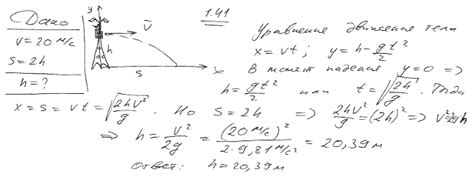 1.41
Дано
V = 20 м/с
S = 2h
h = ?
y
V
h
S
x
Уравнение движения тела
x = vt; y = h - gt²/2
В момент падения y = 0 =>
h = gt²/2 или t = √(2h/g). Тогда
x = s = vt = √(2hv²/g). Но S = 2h => 2hv²/g = (2h)² => v² = 2gh
=> h = v²/2g = (20 м/с)²/(2·9,81 м/с²) = 20,39 м
Ответ: h = 20,39 м